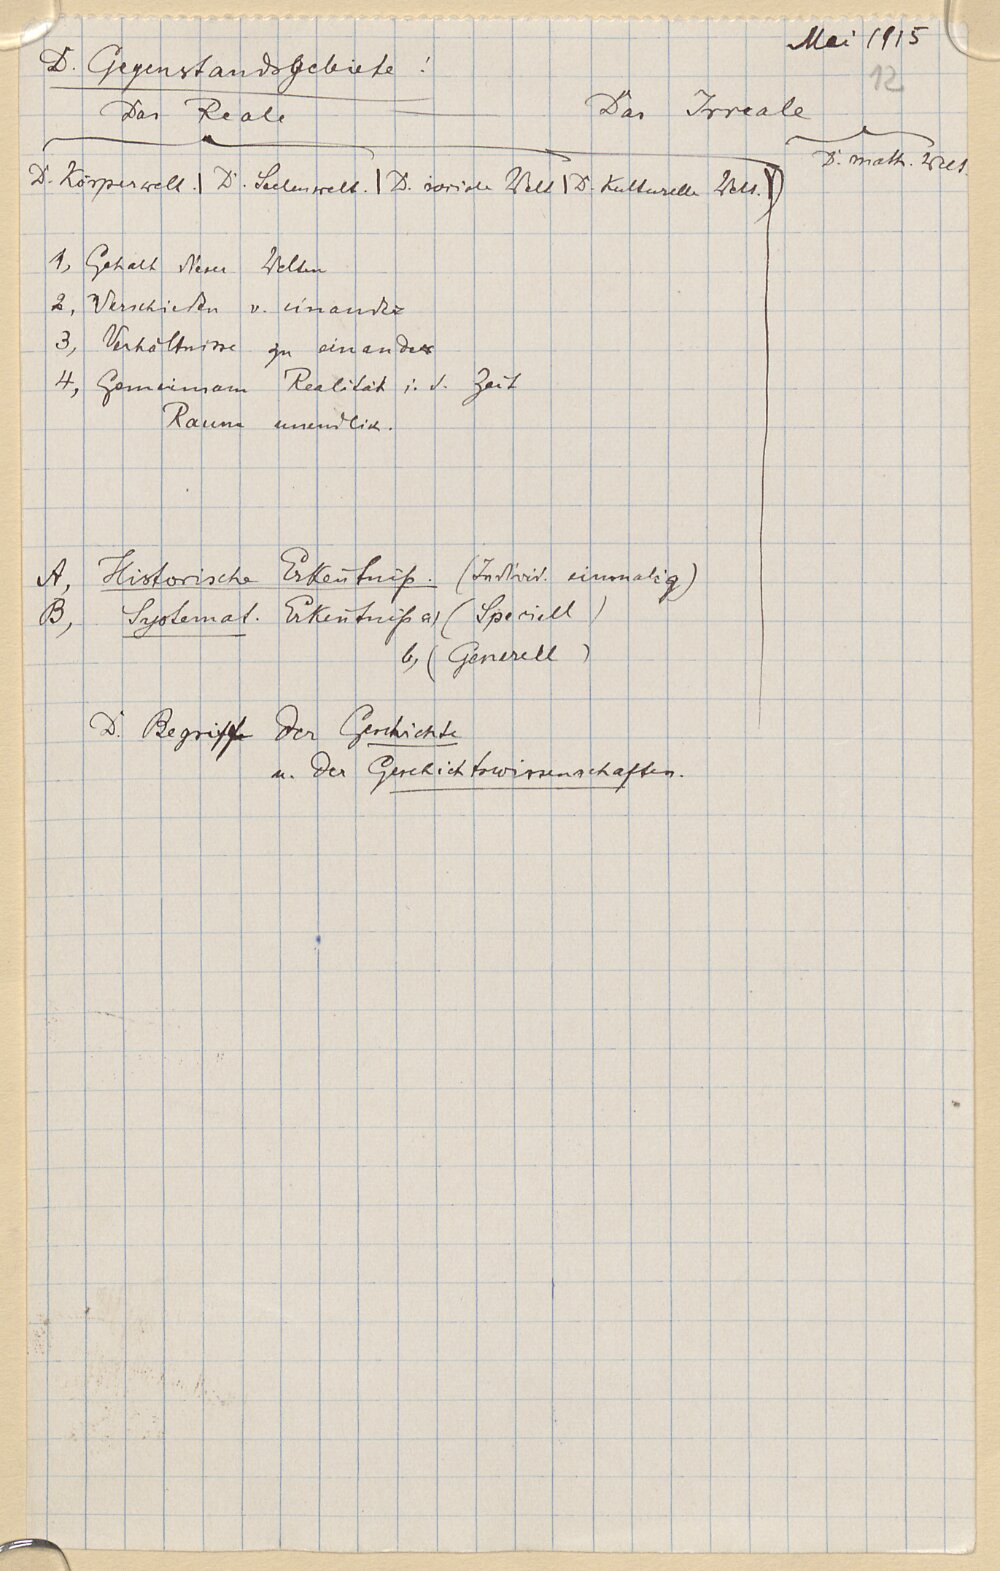 Mai 1915
12
D. Gegenstandsgebiete :
Das Reale — Das Irreale
D. Körperwelt. | D. Seelenwelt. | D. soziale Welt | D. Kulturelle Welt. | D. math. Welt.
1, Gehalt dieser Welten
2, Verschieden v. einander
3, Verhältnisse zu einander
4, Gemeinsam Realität i. d. Zeit
Raum unendlich.
A, Historische Erkentniß. (Individ. einmalig)
B, Systemat. Erkentniß a) (Speciell)
b, (Generell)
D. Begriffe der Geschichte
u. der Geschichtswissenschaften.